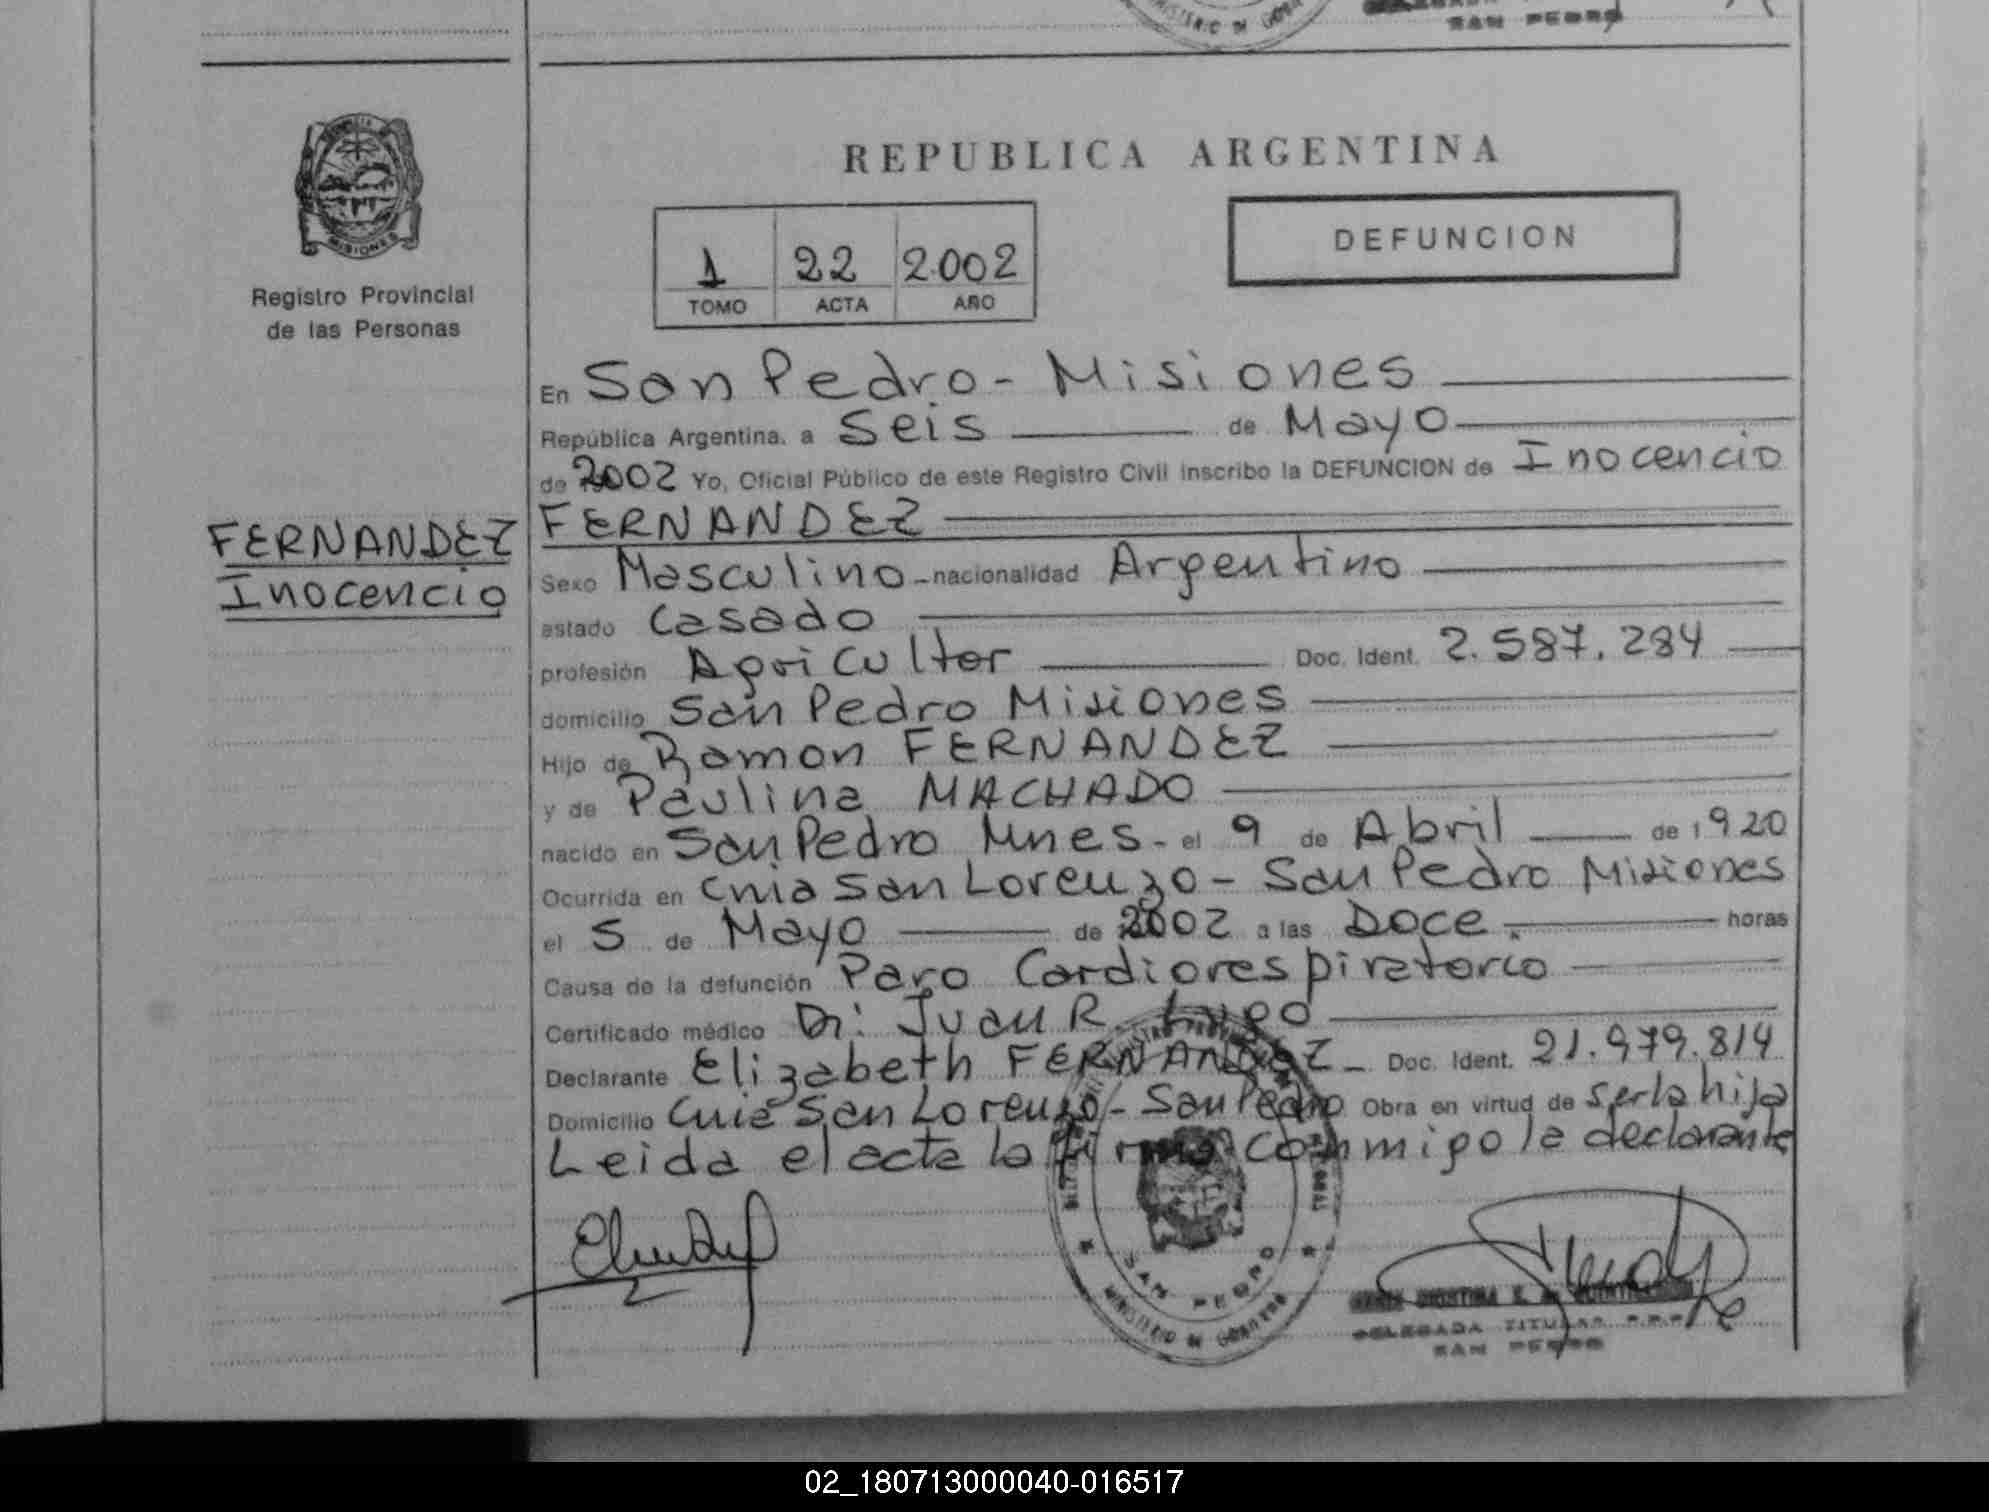 MINISTERIO DE GOBER
SAN PEDRO
PROVINCIA DE
MISIONES
Registro Provincial
de las Personas
FERNANDEZ
Inocencio
REPUBLICA ARGENTINA
1 22 2.002
TOMO ACTA AÑO
DEFUNCION
En San Pedro - Misiones
República Argentina, a Seis de Mayo
de 2002 Yo, Oficial Público de este Registro Civil inscribo la DEFUNCION de Inocencio
FERNANDEZ
Sexo Masculino - nacionalidad Argentino
estado Casado
profesión Agricultor Doc. Ident. 2.587.284
domicilio San Pedro Misiones
Hijo de Ramon FERNANDEZ
y de Paulina MACHADO
nacido en San Pedro Mnes - el 9 de Abril de 1920
Ocurrida en Cnia San Lorenzo - San Pedro Misiones
el 5 de Mayo de 2002 a las Doce. horas
Causa de la defunción Paro Cardiorespiratorio
Certificado médico Dr: Juan R. Lugo
Declarante Elizabeth FERNANDEZ - Doc. Ident. 21.979.814
Domicilio Cnia San Lorenzo - San Pedro Obra en virtud de ser la hija
Leida el acta la firma conmigo la declarante
SAN PEDRO
MINISTERIO DE GOBIERNO
DELEGADA TITULAR R.P.P.
SAN PEDRO
02_180713000040-016517